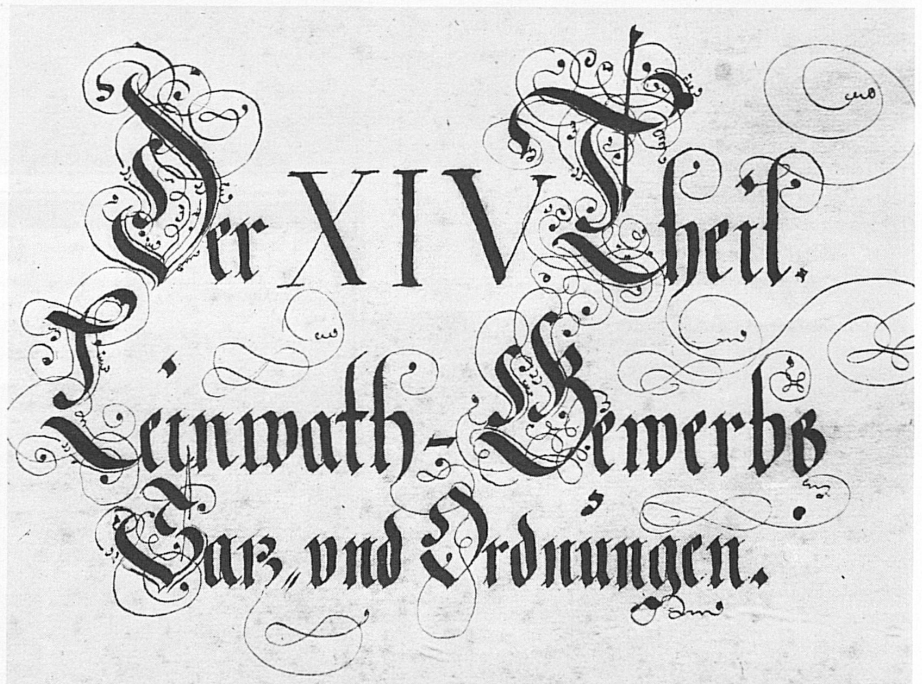 Der XIV Theil.
Leinwath-Gewerbs
Saz„ vnd Ordnungen.